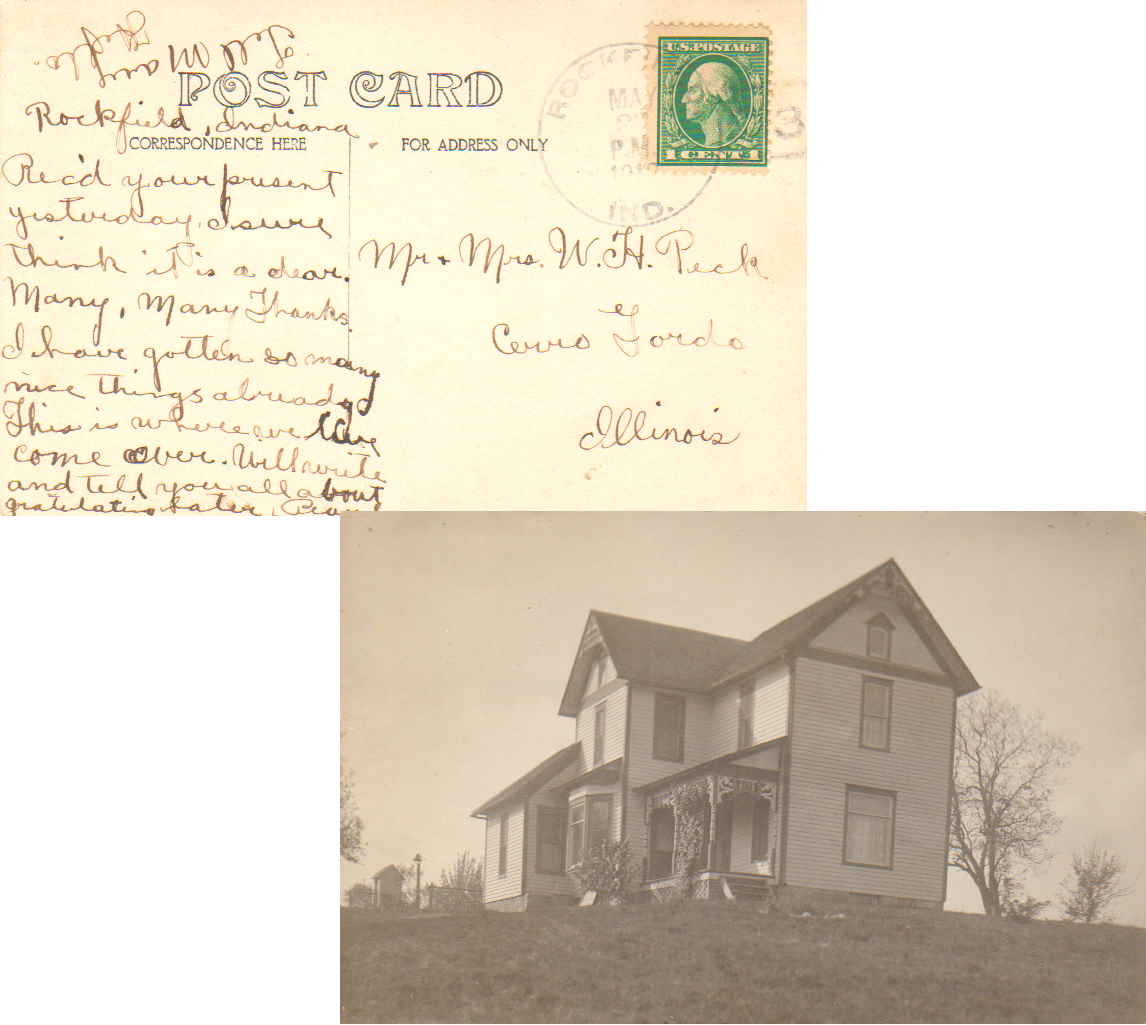 Tell
POST CARD
Rockfield, Indiana
CORRESPONDENCE HERE
FOR ADDRESS ONLY
Rec'd your present
yesterday. I sure
think it is a dear.
Many, Many Thanks.
I have gotten so many
nice things already
This is where we live
come over. Will write
and tell you all about
later,
U.S. POSTAGE
1 CENT 1
ROCKF
MA
P.M.
IND.
3
Mr + Mrs. W. H. Peck
Cerro Gordo
Illinois